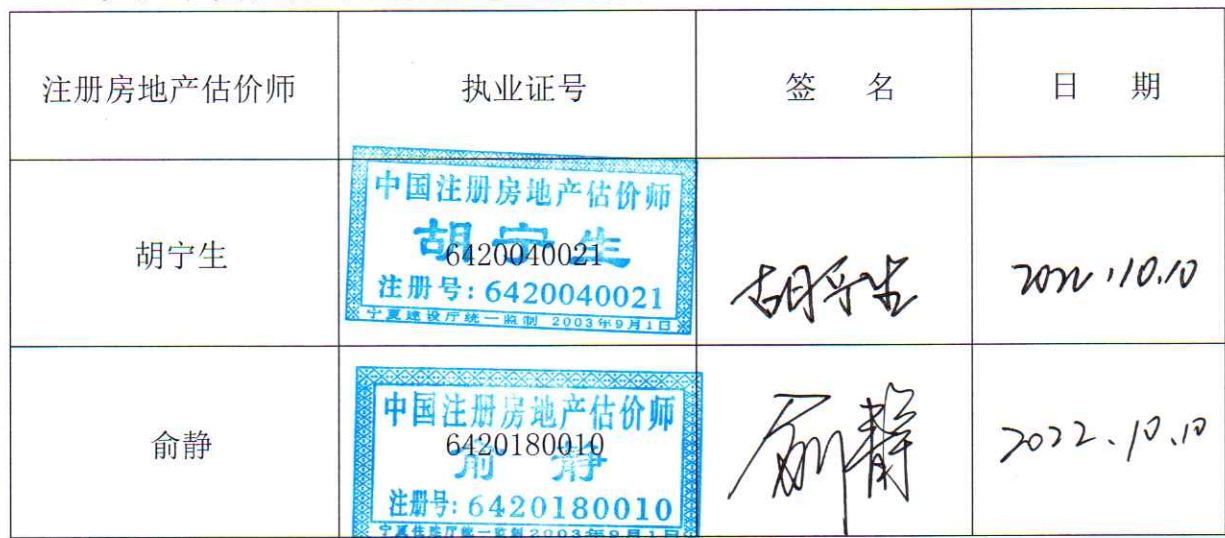 注册房地产估价师 执业证号 签 名 日 期
中国注册房地产估价师
胡宁生
胡宁生
6420040021
注册号:6420040021
宁夏建设厅统一监制 2003年9月1日
胡宁生
2022.10.10
中国注册房地产估价师
俞静
6420180010
俞静
注册号:6420180010
宁夏住建厅统一监制2003年9月1日
俞静
2022.10.10